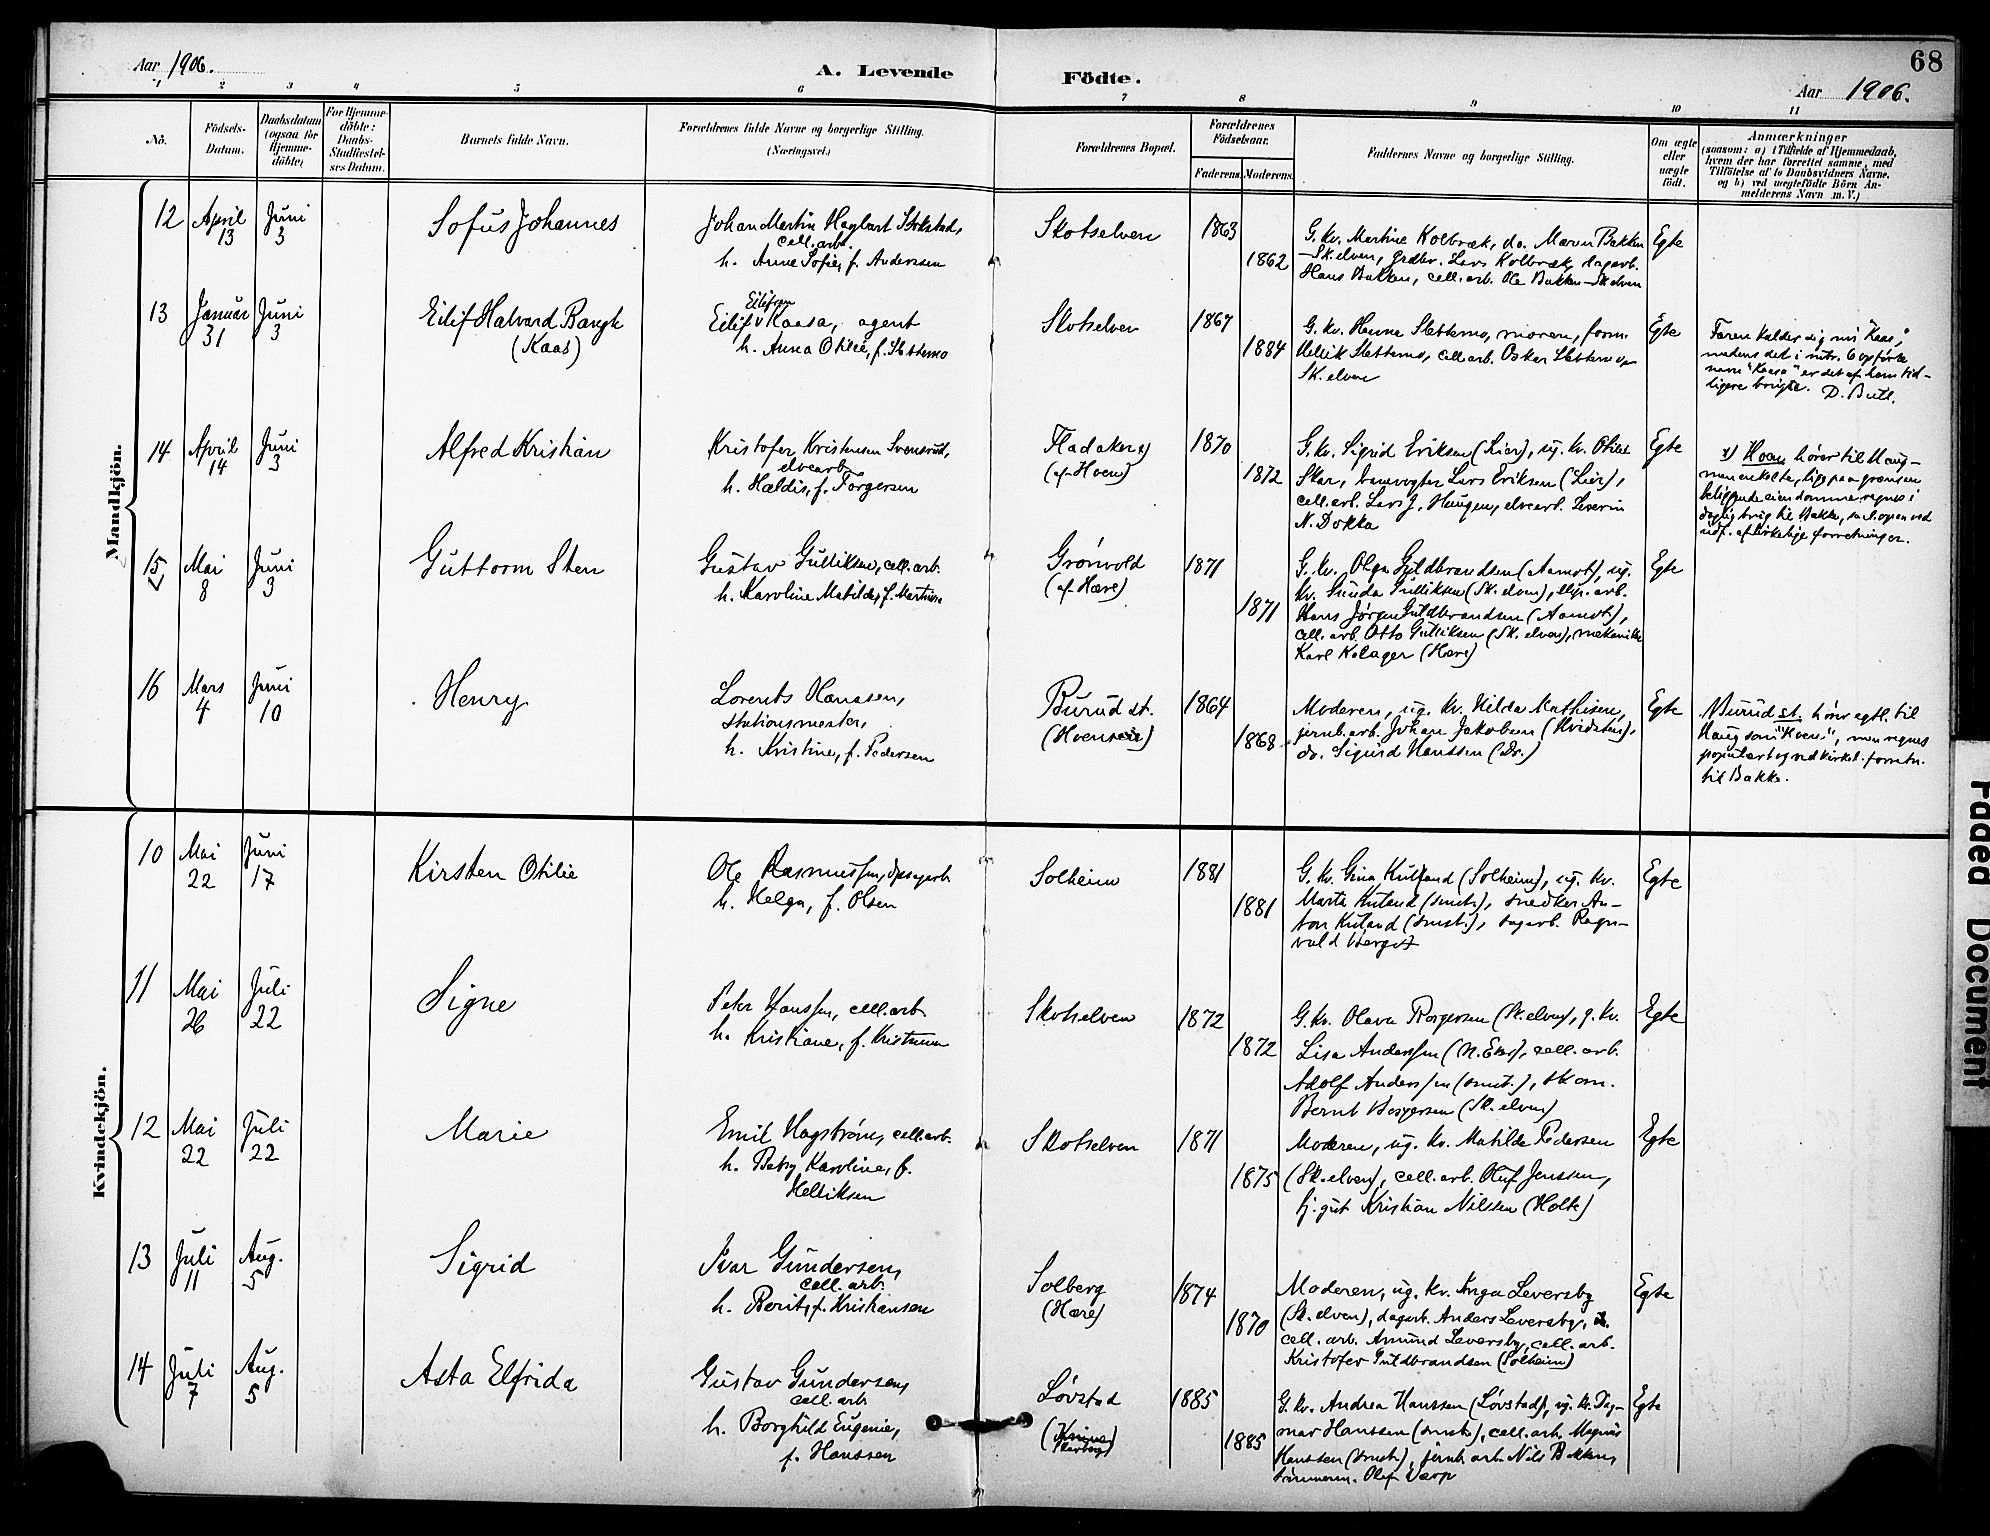 Aar 1906.
A. Levende Födte.
Aar 1906.
68
1 2 3 4 5 6 7 8 9 10 11
No.
Födsels-
Datum.
Daabsdatum
(ogsaa for
Hjemme-
döbte)
For Hjemme-
döbte:
Daabs-
Stadfæstel-
ses Datum.
Barnets fulde Navn.
Forældrenes fulde Navne og borgerlige Stilling.
(Næringsvei.)
Forældrenes Bopæl.
Forældrenes
Födselsaar.
Faderens. Moderens.
Faddernes Navne og borgerlige Stilling.
Om ægte
eller
uægte
födt.
Anmærkninger
(saasom: a) i Tilfælde af Hjemmedaab,
hvem der har forrettet samme, med
Tilföielse af to Daabsvidners Navne.
og b) ved uægtefödte Börn An-
melderens Navn m. V.)
Mandkjön.
12
April
13
Juni
3
Sofus Johannes
Johan Martin Hagbart
cell. arb.
h. Anne Sofie, f. Anderssen
Skotselven
1863
1862
G. kv. Martine Kolbræk, do. Maren Bakken
Sk.elven, grdbr. Lars Kolbræk, dagarb.
Hans Bakken, cell. arb. Ole Bakken - Sk.elven
Egte
13
Januar
31
Juni
3
Eilif Halvard Bangh
(Kaas)
Eilifsen
Eilif v Kaasa, agent
h. Anna Otilie, f. Slettemo
Skotselven
1867
1884
G. kv. Slettemo, moren, form.
Slettemo, cell. arb. Oskar Slettemo
Sk.elven
Egte
Faren kalder sig nu "Kaas",
medens det i rubr. 6 opførte
navn "Kaasa" er det af ham tid-
ligere brugte. D. Butl.
14
April
14
Juni
3
Alfred Kristian
Kristofer Kristensen Svensrud,
elvearb.
h. Haldis, f. Torgersen
Fladaker
(af Hoen)
1870
1872
G. kv. Sigrid Eriksen (Lier), ug. kv. Otilie
Skar, banevogter Lars Eriksen (Lier),
cell. arb. Lars J. Haugen, elvearb. Severin
N. Dokka
Egte
x) Hoen hører til Haug-
men enkelte, lige paa grænsen
beliggende eiendomme regnes i
daglig brug til Bakke, ved
udf. af kirkelige forretninger.
15
Mai
8
Juni
3
Guttorm Sten
Gustav Gulliksen, cell. arb.
h. Karoline Matilde, f. Martinsen
Grønvold
(af Hære)
1871
1871
G. kv. Olga Guldbrandsen (Aamot), ug.
kv. Gunda Gulliksen (Sk.elven), arb.
Hans Jørgen Guldbrandsen (Aamot),
cell. arb. Otto Gulliksen (Sk. elven), mekaniker
Karl Kolager (Hære)
Egte
16
Mars
4
Juni
10
Henry
Lorents Hanssen,
stationsmester,
h. Kristine, f. Pedersen
Burud st.
(Hoenseie)
1864
1868
Moderen, ug. kv. Hilda Mathisen,
jernb. arb. Johan Jakobsen (Hvidsten),
do. Sigurd Hanssen (Do.)
Egte
Burud st. hører egtl. til
Haug som "Hoens", men regnes
populært og ved kirkel. forretn.
til Bakke.
Kvindekjön.
10
Mai
22
Juni
17
Kirsten Otilie
Ole Rasmussen,
h. Helga, f. Olsen
Solheim
1881
1881
G. kv. Gina Kutland (Solheim), ug. kv.
Marta Kutland (smst.), snedker An-
ton Kutland (smst.), sagarb. Ragn-
vald
Egte
11
Mai
26
Juli
22
Signe
Peter Hanssen, cell. arb.
h. Kristiane, f. Kristensen
Skotselven
1872
1872
G. kv. Olava Borgersen (Sk.elven), g. kv.
Lisa Anderssen (N. Eker), cell. arb.
Adolf Anderssen (smst.), skom.
Bernt Borgersen (Sk. elven)
Egte
12
Mai
22
Juli
22
Marie
Emil Hagstrøm, cell. arb.
h. Betsy Karoline, f.
Helliksen
Skotselven
1871
1875
Moderen, ug. kv. Matilde Pedersen
(Sk. elven), cell. arb. Oluf Jenssen,
tj. gut Kristian Nilssen (Holte)
Egte
13
Juli
11
Aug.
5
Sigrid
Ivar Gundersen,
cell. arb.
h. Berit, f. Kristiansen
Solberg
(Hære)
1874
1870
Moderen, ug. kv. Inga Leversby
(Sk. elven), dagarb. Anders Leversby,
cell. arb. Amund Leversby, cell. arb.
Kristofer Guldbrandsen (Solheim)
Egte
14
Juli
7
Aug.
5
Asta Elfrida
Gustav Gundersen,
cell. arb.
h. Borghild Eugenie,
f. Hanssen
Løvstad
1885
1885
G. kv. Andrea Hanssen (Løvstad), ug. kv. Dag-
mar Hanssen (smst.), cell. arb. Magnus
Hanssen (smst.), jernb. arb. Nils Bakken,
tømmerm. Olaf Værp
Egte
Faded Document